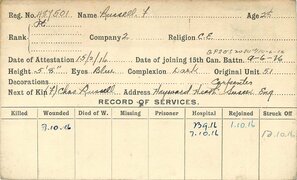 Reg. No. 457501 Name Russell F Age 25
Rank Pte Company 2 Religion C.E.
Date of Attestation 15/2/16 Date of joining 15th Can. Battn. 9-6-16
Height 5' 8" Eyes Blue Complexion Dark Original Unit 51
Decorations Carpenter
Next of Kin F/ Chas Russell Address Hayward Heath Sussex Eng
RECORD OF SERVICES.
Killed Wounded Died of W. Missing Prisoner Hospital Rejoined Struck Off
3.10.16 1.10.16
7.10.16 12.10.16